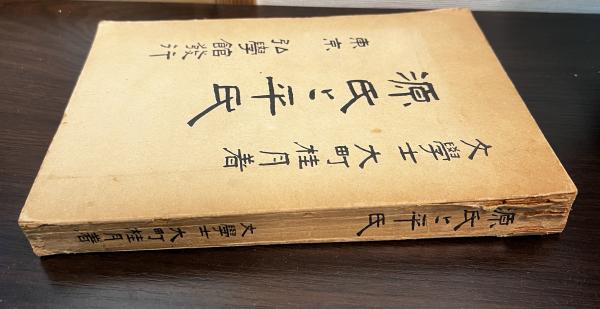 文學士 大町桂月著
源氏と平氏
東京 弘學館發行
源氏と平氏
文學士大町桂月著